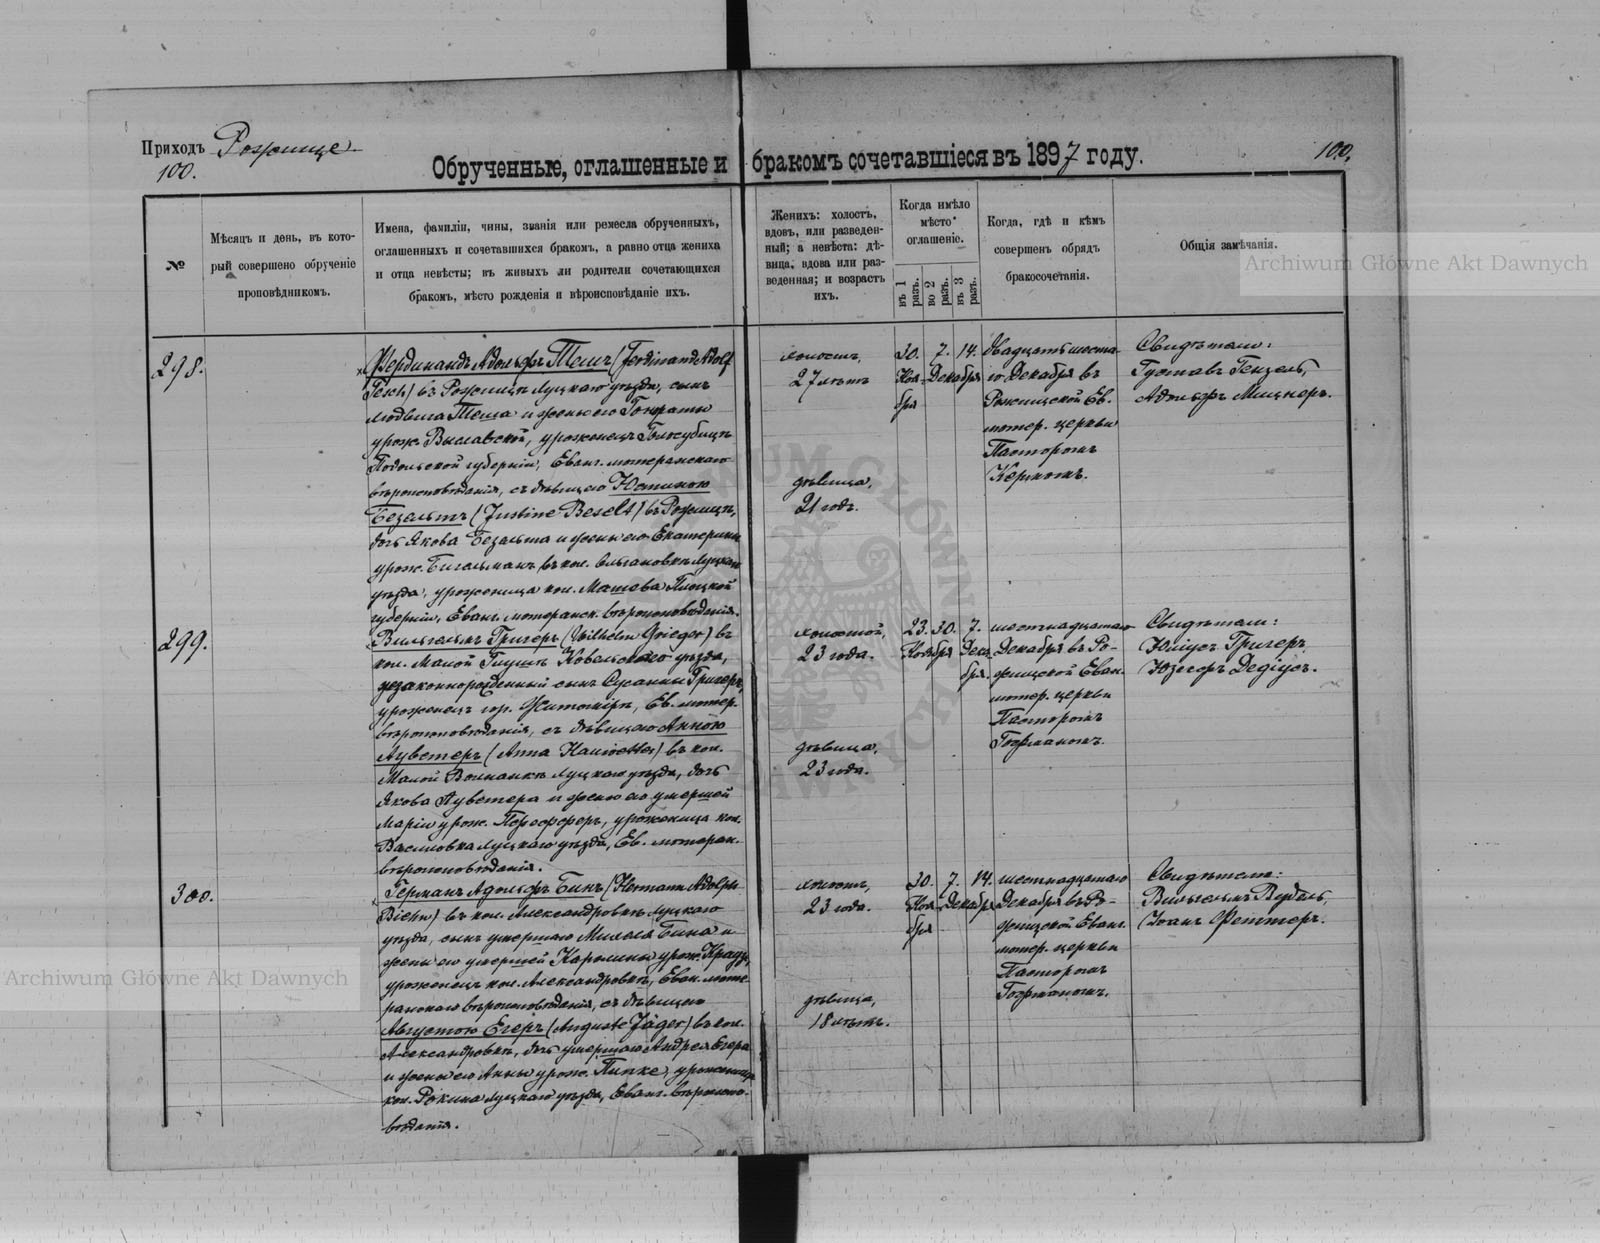 Приходъ Рожище
100.
Обрученные, оглашенные и бракомъ сочетавшіеся въ 1897 году.
100.
№
Мѣсяцъ и день, въ кото-
рый совершено обрученіе
проповѣдникомъ.
Имена, фамиліи, чины, званія или ремесла обрученныхъ,
оглашенныхъ и сочетавшихся бракомъ, а равно отца жениха
и отца невѣсты; въ живыхъ ли родители сочетающихся
бракомъ, мѣсто рожденія и вѣроисповѣданіе ихъ.
Женихъ: холостъ,
вдовъ, или разведен-
ный; а невѣста: дѣ-
вица, вдова или раз-
веденная; и возрастъ
ихъ.
Когда имѣло
мѣсто
оглашеніе.
въ 1 разъ.
во 2 разъ.
въ 3 разъ.
Когда, гдѣ и кѣмъ
совершенъ обрядъ
бракосочетанія.
Общія замѣчанія.
Archiwum Główne Akt Dawnych
298.
Фердинандъ Адольфъ Тешъ (Ferdinand Adolf
Tesch) въ Рожищѣ Луцкаго уѣзда, сынъ
Людвига Теша и жены его
урож. уроженецъ
Подольской губерніи, Еванг. лютеранскаго
вѣроисповѣданія, съ дѣвицею Юстиною
Безельтъ (Justine Beselt) въ Рожищѣ,
дочь Якова Безельта и жены его Екатерины
урож. Бигальманъ въ кол. Ольгановкѣ Луцкаго
уѣзда, уроженица кол. Матева Плоцкой
губерніи, Еванг. лютеранск. вѣроисповѣданія.
холостъ,
27 лѣтъ
дѣвица,
21 годъ.
30. 7. 14.
Ноя- Декабря
бря
двадцать шеста-
го Декабря въ
Рожищской Ев.
лютер. церкви
Пасторомъ
Кермомъ.
Свидѣтели:
Густавъ Гензель,
Адольфъ Мицнеръ.
299.
Вильгельмъ Григеръ (Wilhelm Grieger) въ
кол. Малой Глушѣ Ковельскаго уѣзда,
незаконнорожденный сынъ Сусанны Григеръ,
уроженецъ гор. Житоміръ, Ев. лютер.
вѣроисповѣданія, съ дѣвицею Анною
Ауветеръ (Anna Hauwetter) въ кол.
Малой Волнянкѣ Луцкаго уѣзда, дочь
Якова Ауветера и жены его умершей
Маріи урож. уроженица кол.
Василювка Луцкаго уѣзда, Ев. лютеран.
вѣроисповѣданія.
холостой,
23 года.
дѣвица,
23 года.
23. 30. 7.
Ноября Дека-
бря.
шестнадцатаго
Декабря въ Ро-
жищской Еван.
лютер. церкви
Пасторомъ
Гофманомъ.
Свидѣтели:
Юліусъ Григеръ,
Юзефъ Дедіусъ.
300.
Германъ Адольфъ Бинъ (Hermann Adolph
Biehn) въ кол. Александровкѣ Луцкаго
уѣзда, сынъ умершаго Михаля Бина и
жены его умершей Каролины урож. Краузе,
уроженецъ кол. Александровкѣ, Еван. люте-
ранскаго вѣроисповѣданія, съ дѣвицею
Августою Егеръ (Auguste Jäger) въ кол.
Александровкѣ, дочь умершаго Андрея Егера
и жены его Анны урож. Пипке, уроженица
кол. Рокина Луцкаго уѣзда, Еванг. вѣроиспо-
вѣданія.
холостъ,
23 года.
дѣвица,
18 лѣтъ.
30. 7. 14.
Ноя- Декабря
бря
шестнадцатаго
Декабря въ Ро-
жищской Еванг.
лютер. церкви
Пасторомъ
Гофманомъ.
Свидѣтели:
Вильгельмъ Вудель,
Іоанъ Феттеръ.
Archiwum Główne Akt Dawnych